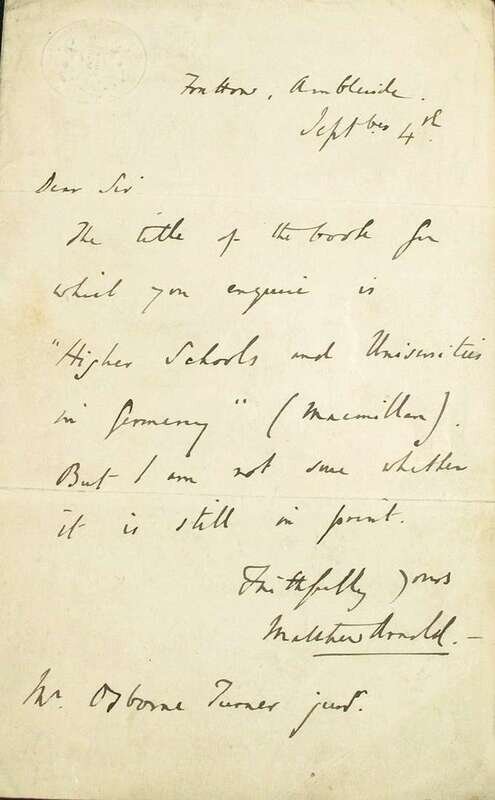 Fox How, Ambleside.
Septber 4th
Dear Sir
The title of the book for
which you enquire is
"Higher Schools and Universities
in Germany" (Macmillan).
But I am not sure whether
it is still in print.
Faithfully yours
Matthew Arnold. —
Mr. Osborne Turner junr.